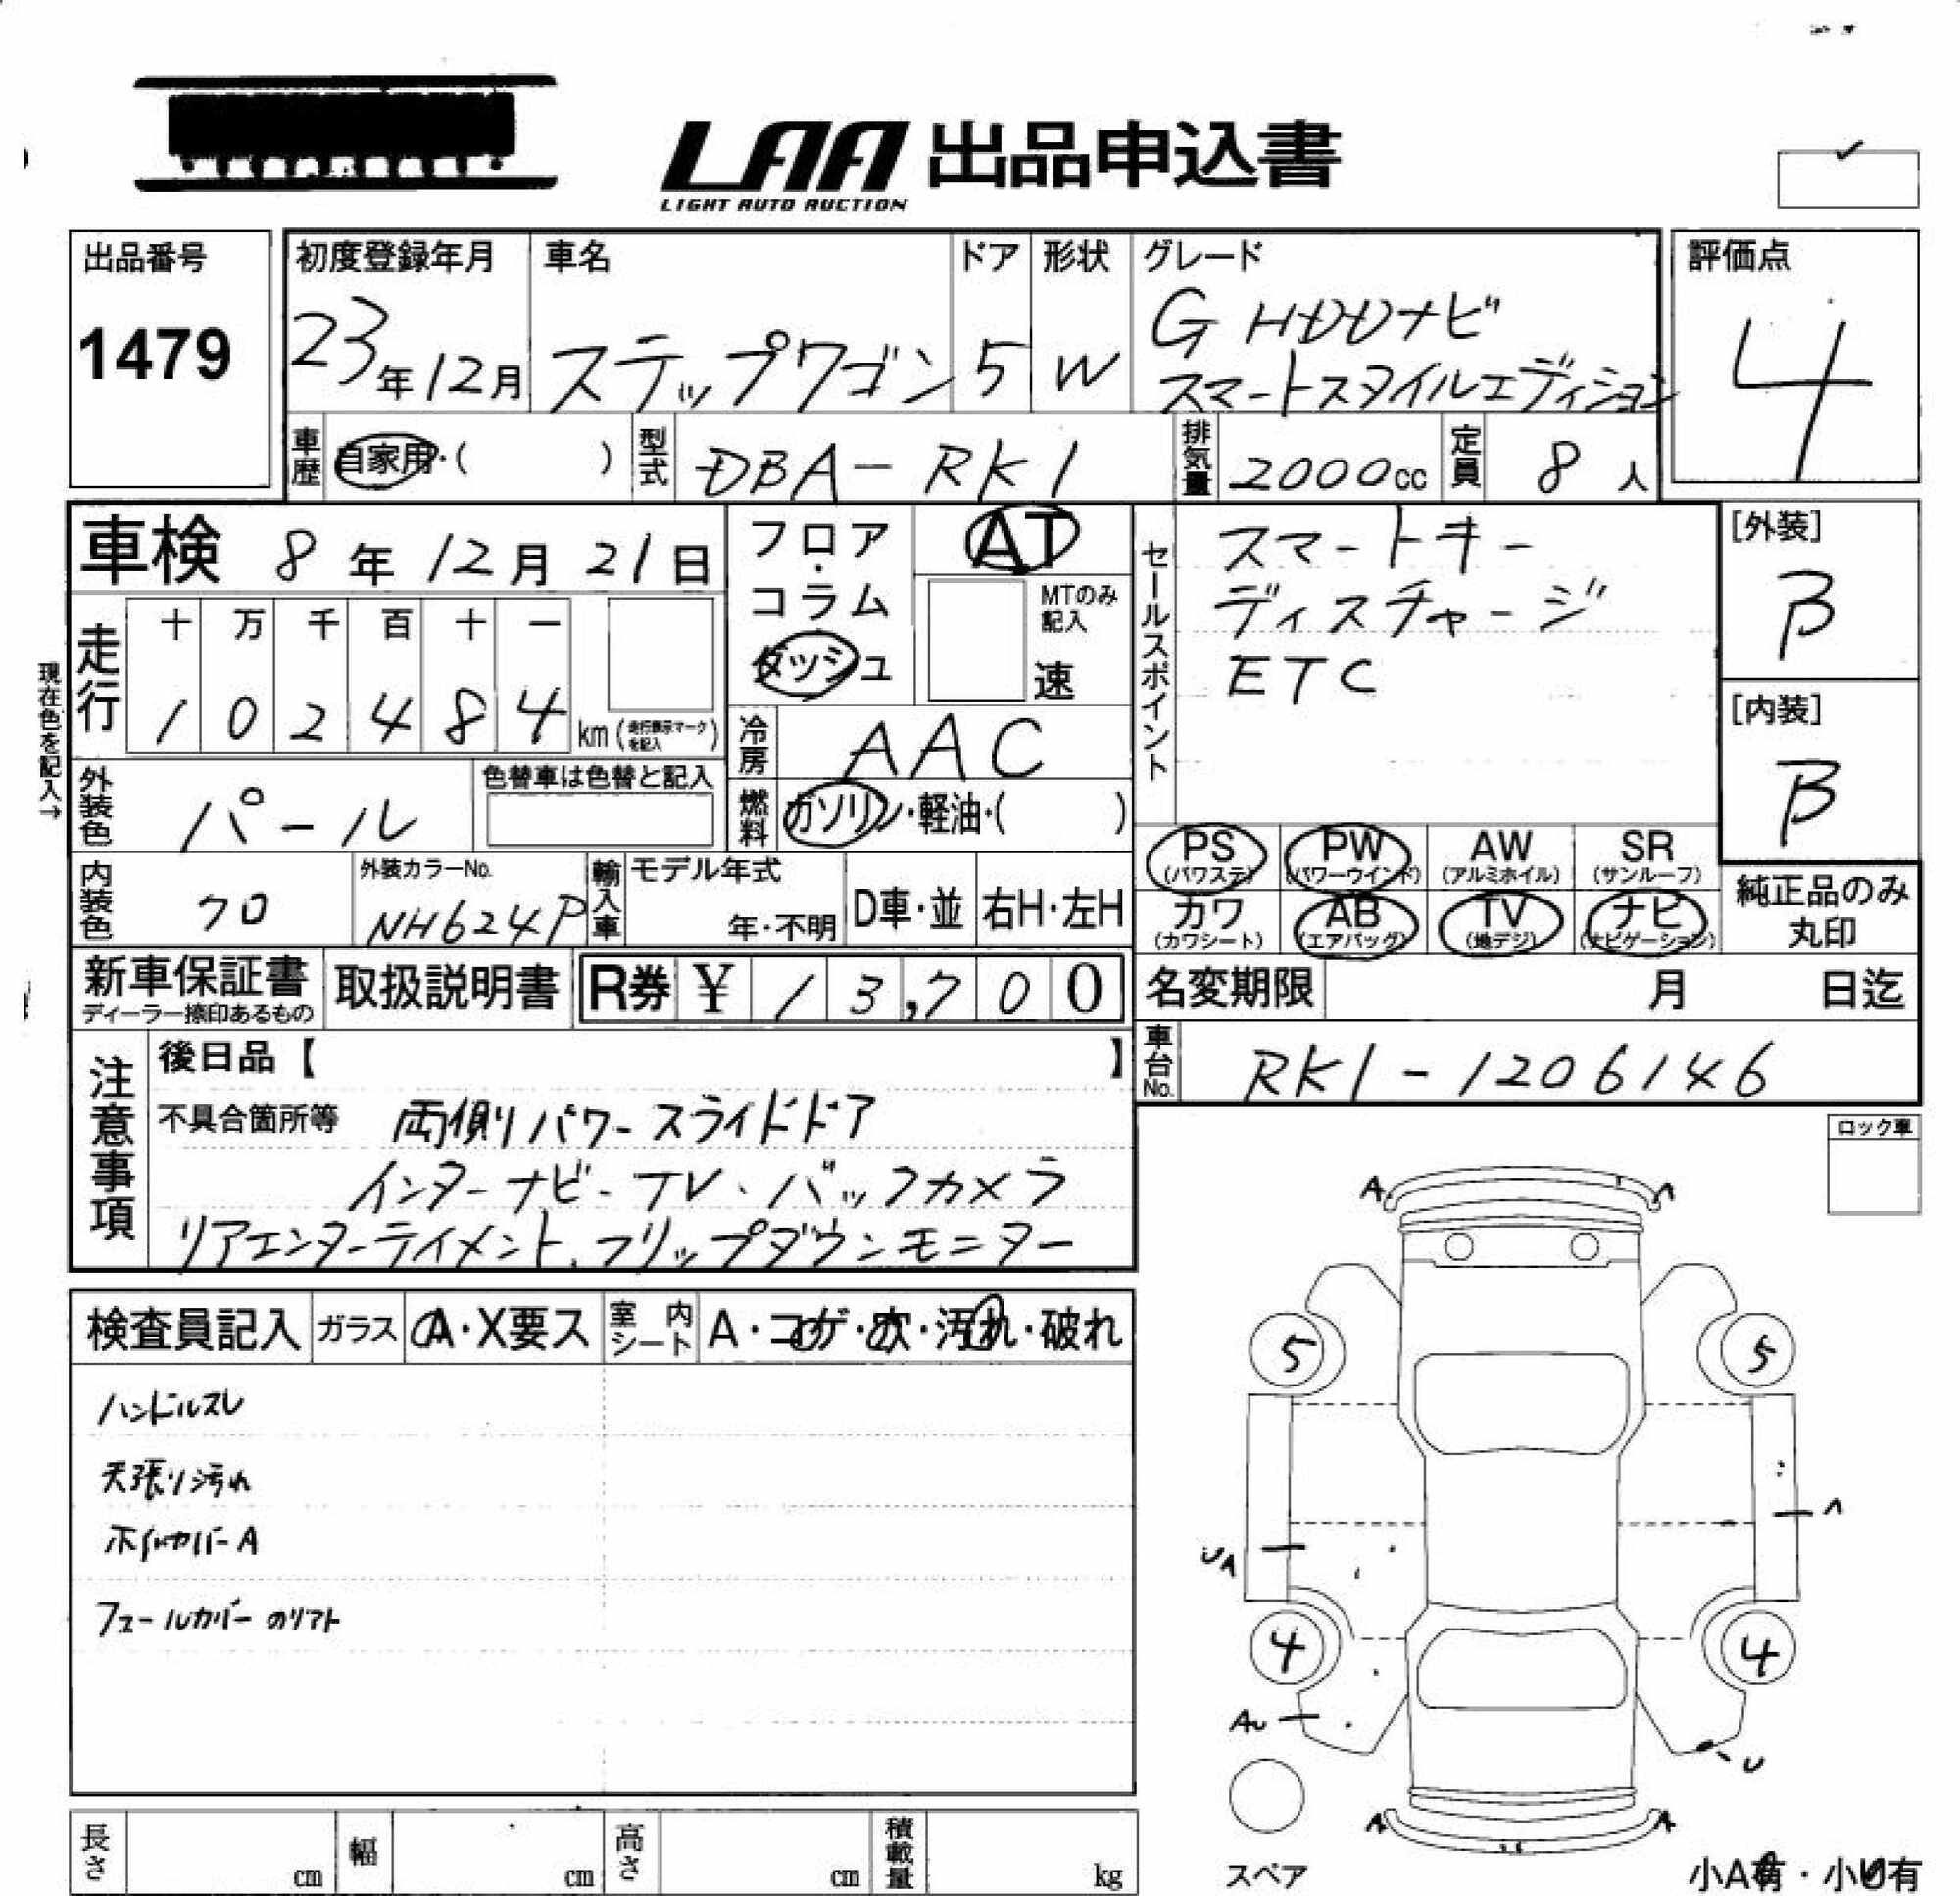 LAA 出品申込書
LIGHT AUTO AUCTION
出品番号
1479
初度登録年月
23年12月
車名
ステップワゴン
ドア
5
形状
W
グレード
G HDDナビ
スマートスタイルエディション
評価点
4
車歴
自家用・( )
型式
DBA-RK1
排気量
2000cc
定員
8人
車検 8年12月21日
フロア・コラム
ダッシュ
AT
MTのみ
記入
速
セールスポイント
スマートキー
ディスチャージ
ETC
[外装]
B
[内装]
B
現在色を記入→
走行
十 万 千 百 十 一
1 0 2 4 8 4 km (走行表示マークを記入)
冷房
AAC
燃料
ガソリン・軽油・( )
外装色
パール
色替車は色替と記入
内装色
クロ
外装カラーNo.
NH624P
輸入車
モデル年式
年・不明
D車・並
右H・左H
PS (パワステ)
PW (パワーウインド)
AW (アルミホイル)
SR (サンルーフ)
カワ (カワシート)
AB (エアバッグ)
TV (地デジ)
ナビ (ナビゲーション)
純正品のみ
丸印
新車保証書
ディーラー捺印あるもの
取扱説明書
R券 ¥ 13,700
名変期限 月 日迄
車台No.
RK1-1206146
注意事項
後日品【 】
不具合箇所等 両側パワースライドドア
インターナビ・TV・バックカメラ
リアエンターテイメント、フリップダウンモニター
ロック車
検査員記入
ガラス
A・X要ス
室内シート
A・コゲ・穴・汚れ・破れ
ハンドルスレ
天張り汚れ
ホイルカバーA
フューエルカバーのリフト
A
A
5
5
A
UA
4
4
AU
U
A
A
スペア
小A有・小U有
長さ cm
幅 cm
高さ cm
積載量 kg